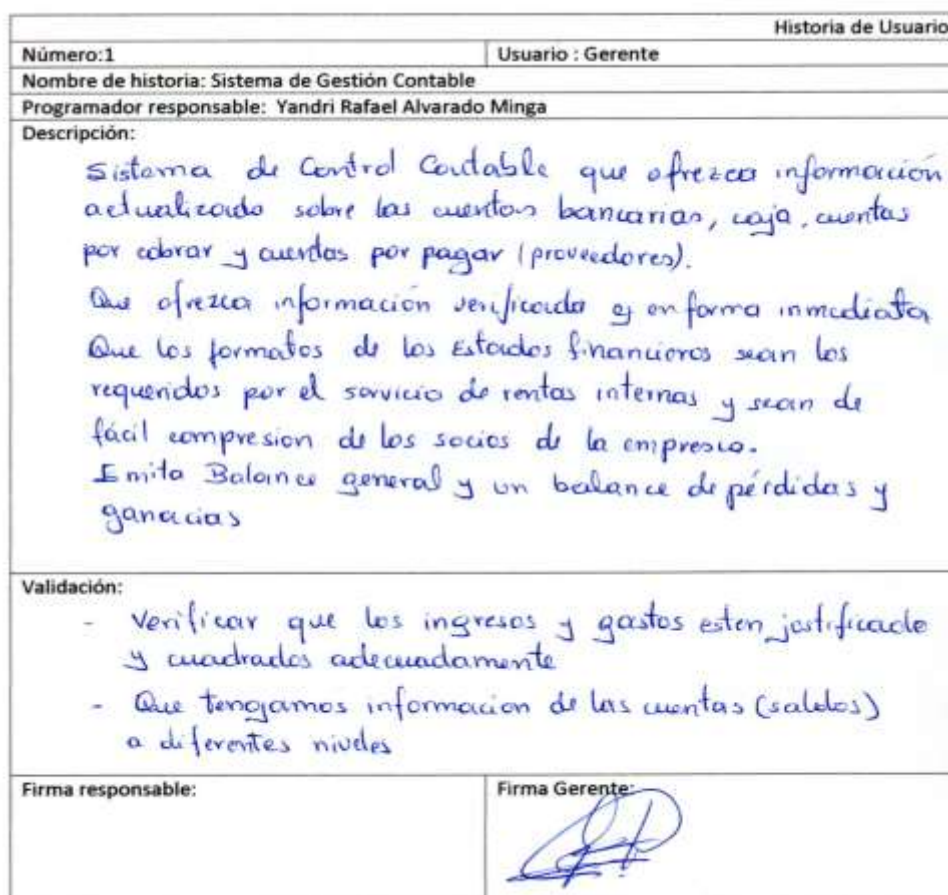 Historia de Usuario
Número:1 Usuario : Gerente
Nombre de historia: Sistema de Gestión Contable
Programador responsable: Yandri Rafael Alvarado Minga
Descripción:
Sistema de Control Contable que ofrezca información
actualizada sobre las cuentas bancarias, caja, cuentas
por cobrar y cuentas por pagar (proveedores).
Que ofrezca información verificada y en forma inmediata
Que los formatos de los Estados financieros sean los
requeridos por el servicio de rentas internas y sean de
fácil compresion de los socios de la empresa.
Emita Balance general y un balance de pérdidas y
ganacias
Validación:
- Verificar que los ingresos y gastos esten justificado
y cuadrados adecuadamente
- Que tengamos informacion de las cuentas (saldos)
a diferentes niveles
Firma responsable: Firma Gerente: